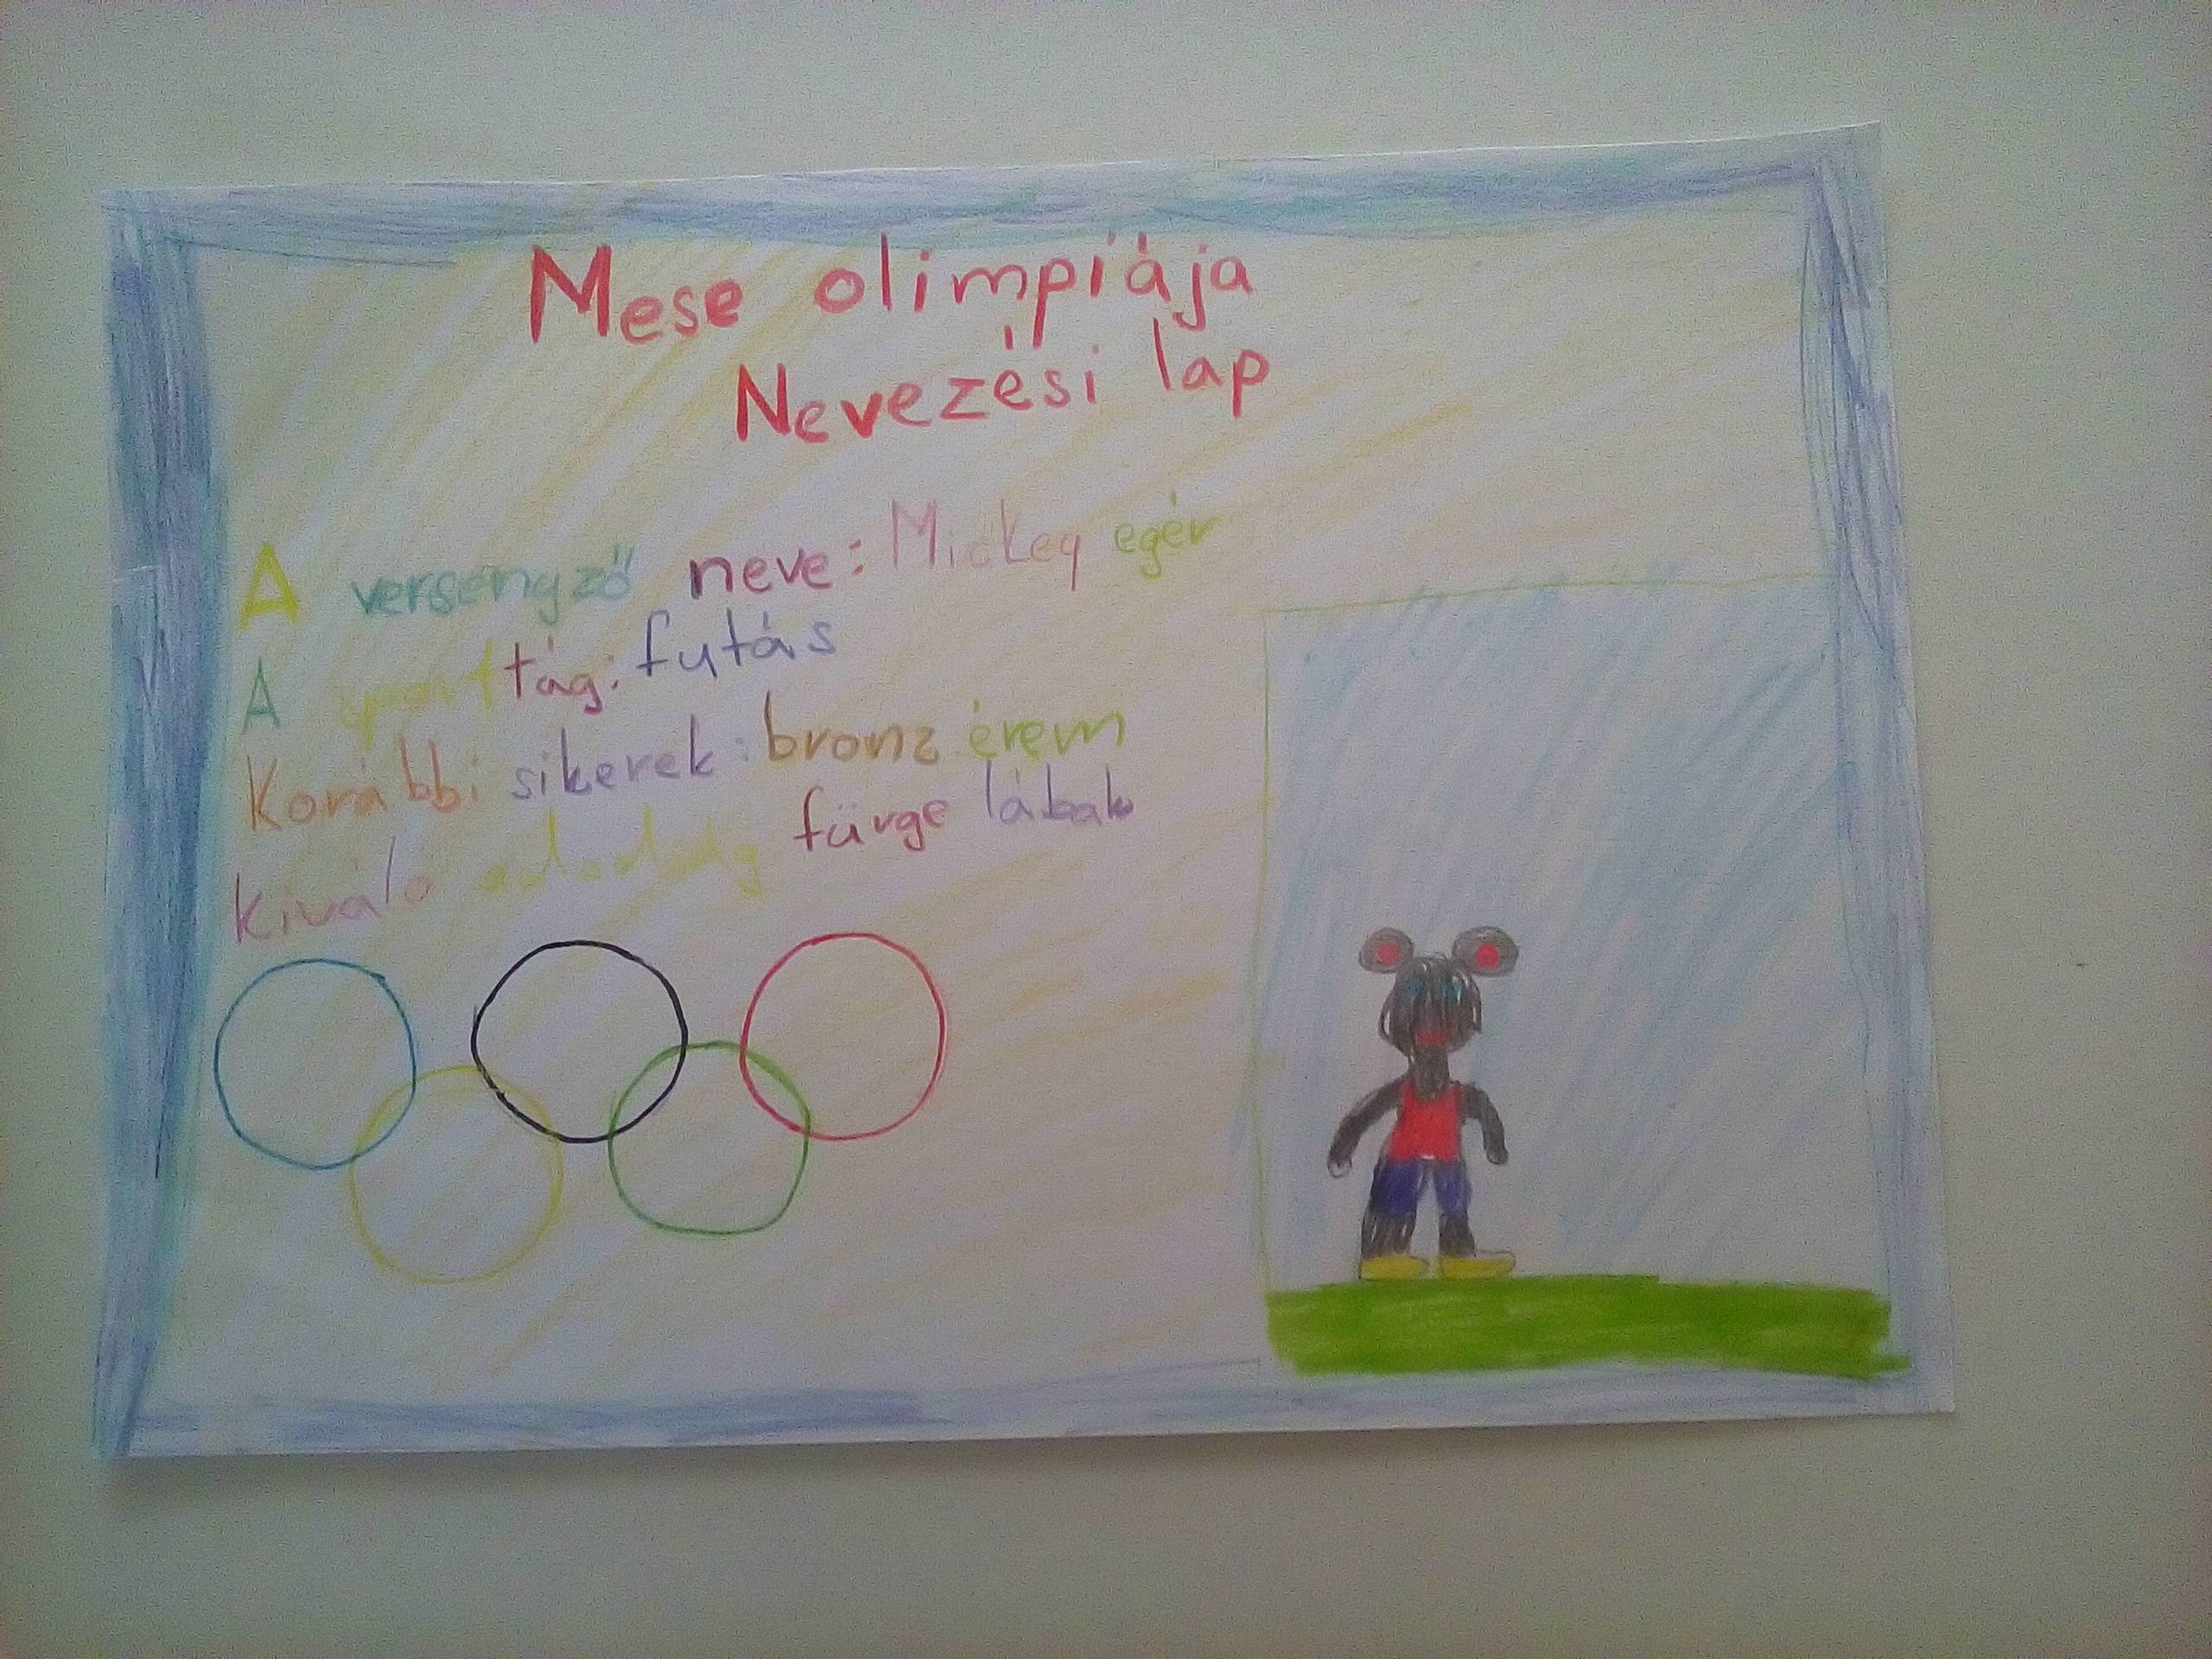 Mese olimpiája
Nevezési lap
A versenyző neve: Mickey egér
A sporttág: futás
Korábbi sikerek: bronz érem
Kiváló adodság fürge lábak